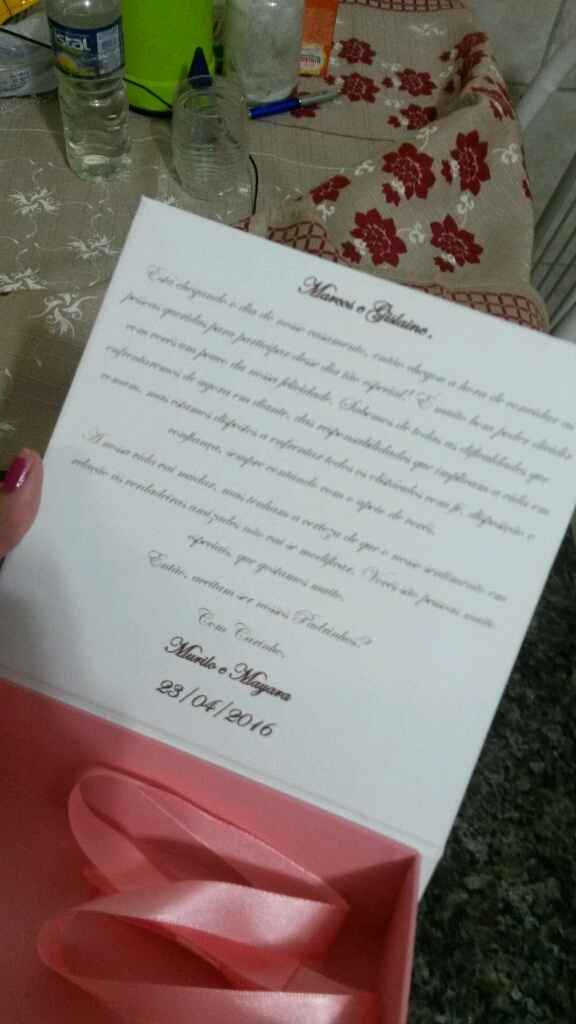 Marcos e Gislaine,
Está chegando o dia do nosso casamento, então chegou a hora de convidar as
pessoas queridas para participar desse dia tão especial! É muito bom poder dividir
com vocês um pouco da nossa felicidade. Sabemos de todas as dificuldades que
enfrentaremos de agora em diante, das responsabilidades que implicam a vida em
comum, mas estamos dispostos a enfrentar todos os obstáculos com fé, disposição e
confiança, sempre contando com o apoio de vocês.
A nossa vida vai mudar, mas tenham a certeza de que o nosso sentimento em
relação as verdadeiras amizades não vai se modificar. Vocês são pessoas muito
especiais, que gostamos muito.
Então, aceitam ser nossos Padrinhos?
Com Carinho,
Murilo e Mayara
23/04/2016